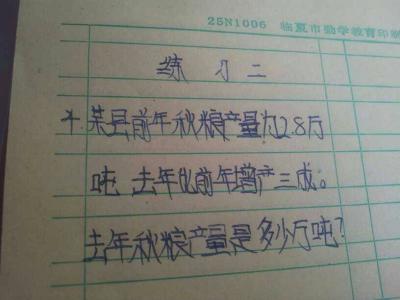 25N1006 临夏市勤学教育印刷
练习二
4.某县前年秋粮产量为2.8万
吨 去年比前年增产三成。
去年秋粮产量是多少万吨?